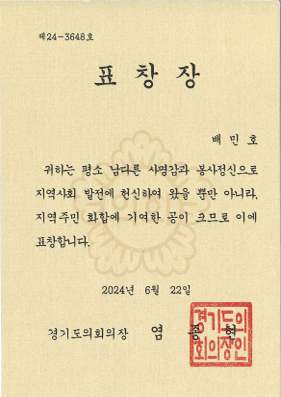 제24-3648호
표 창 장
배 민 호
귀하는 평소 남다른 사명감과 봉사정신으로
지역사회 발전에 헌신하여 왔을 뿐만 아니라,
지역주민 화합에 기여한 공이 크므로 이에
표창합니다.
2024년 6월 22일
경기도의회의장 염 종 현
경기도의
회의장인